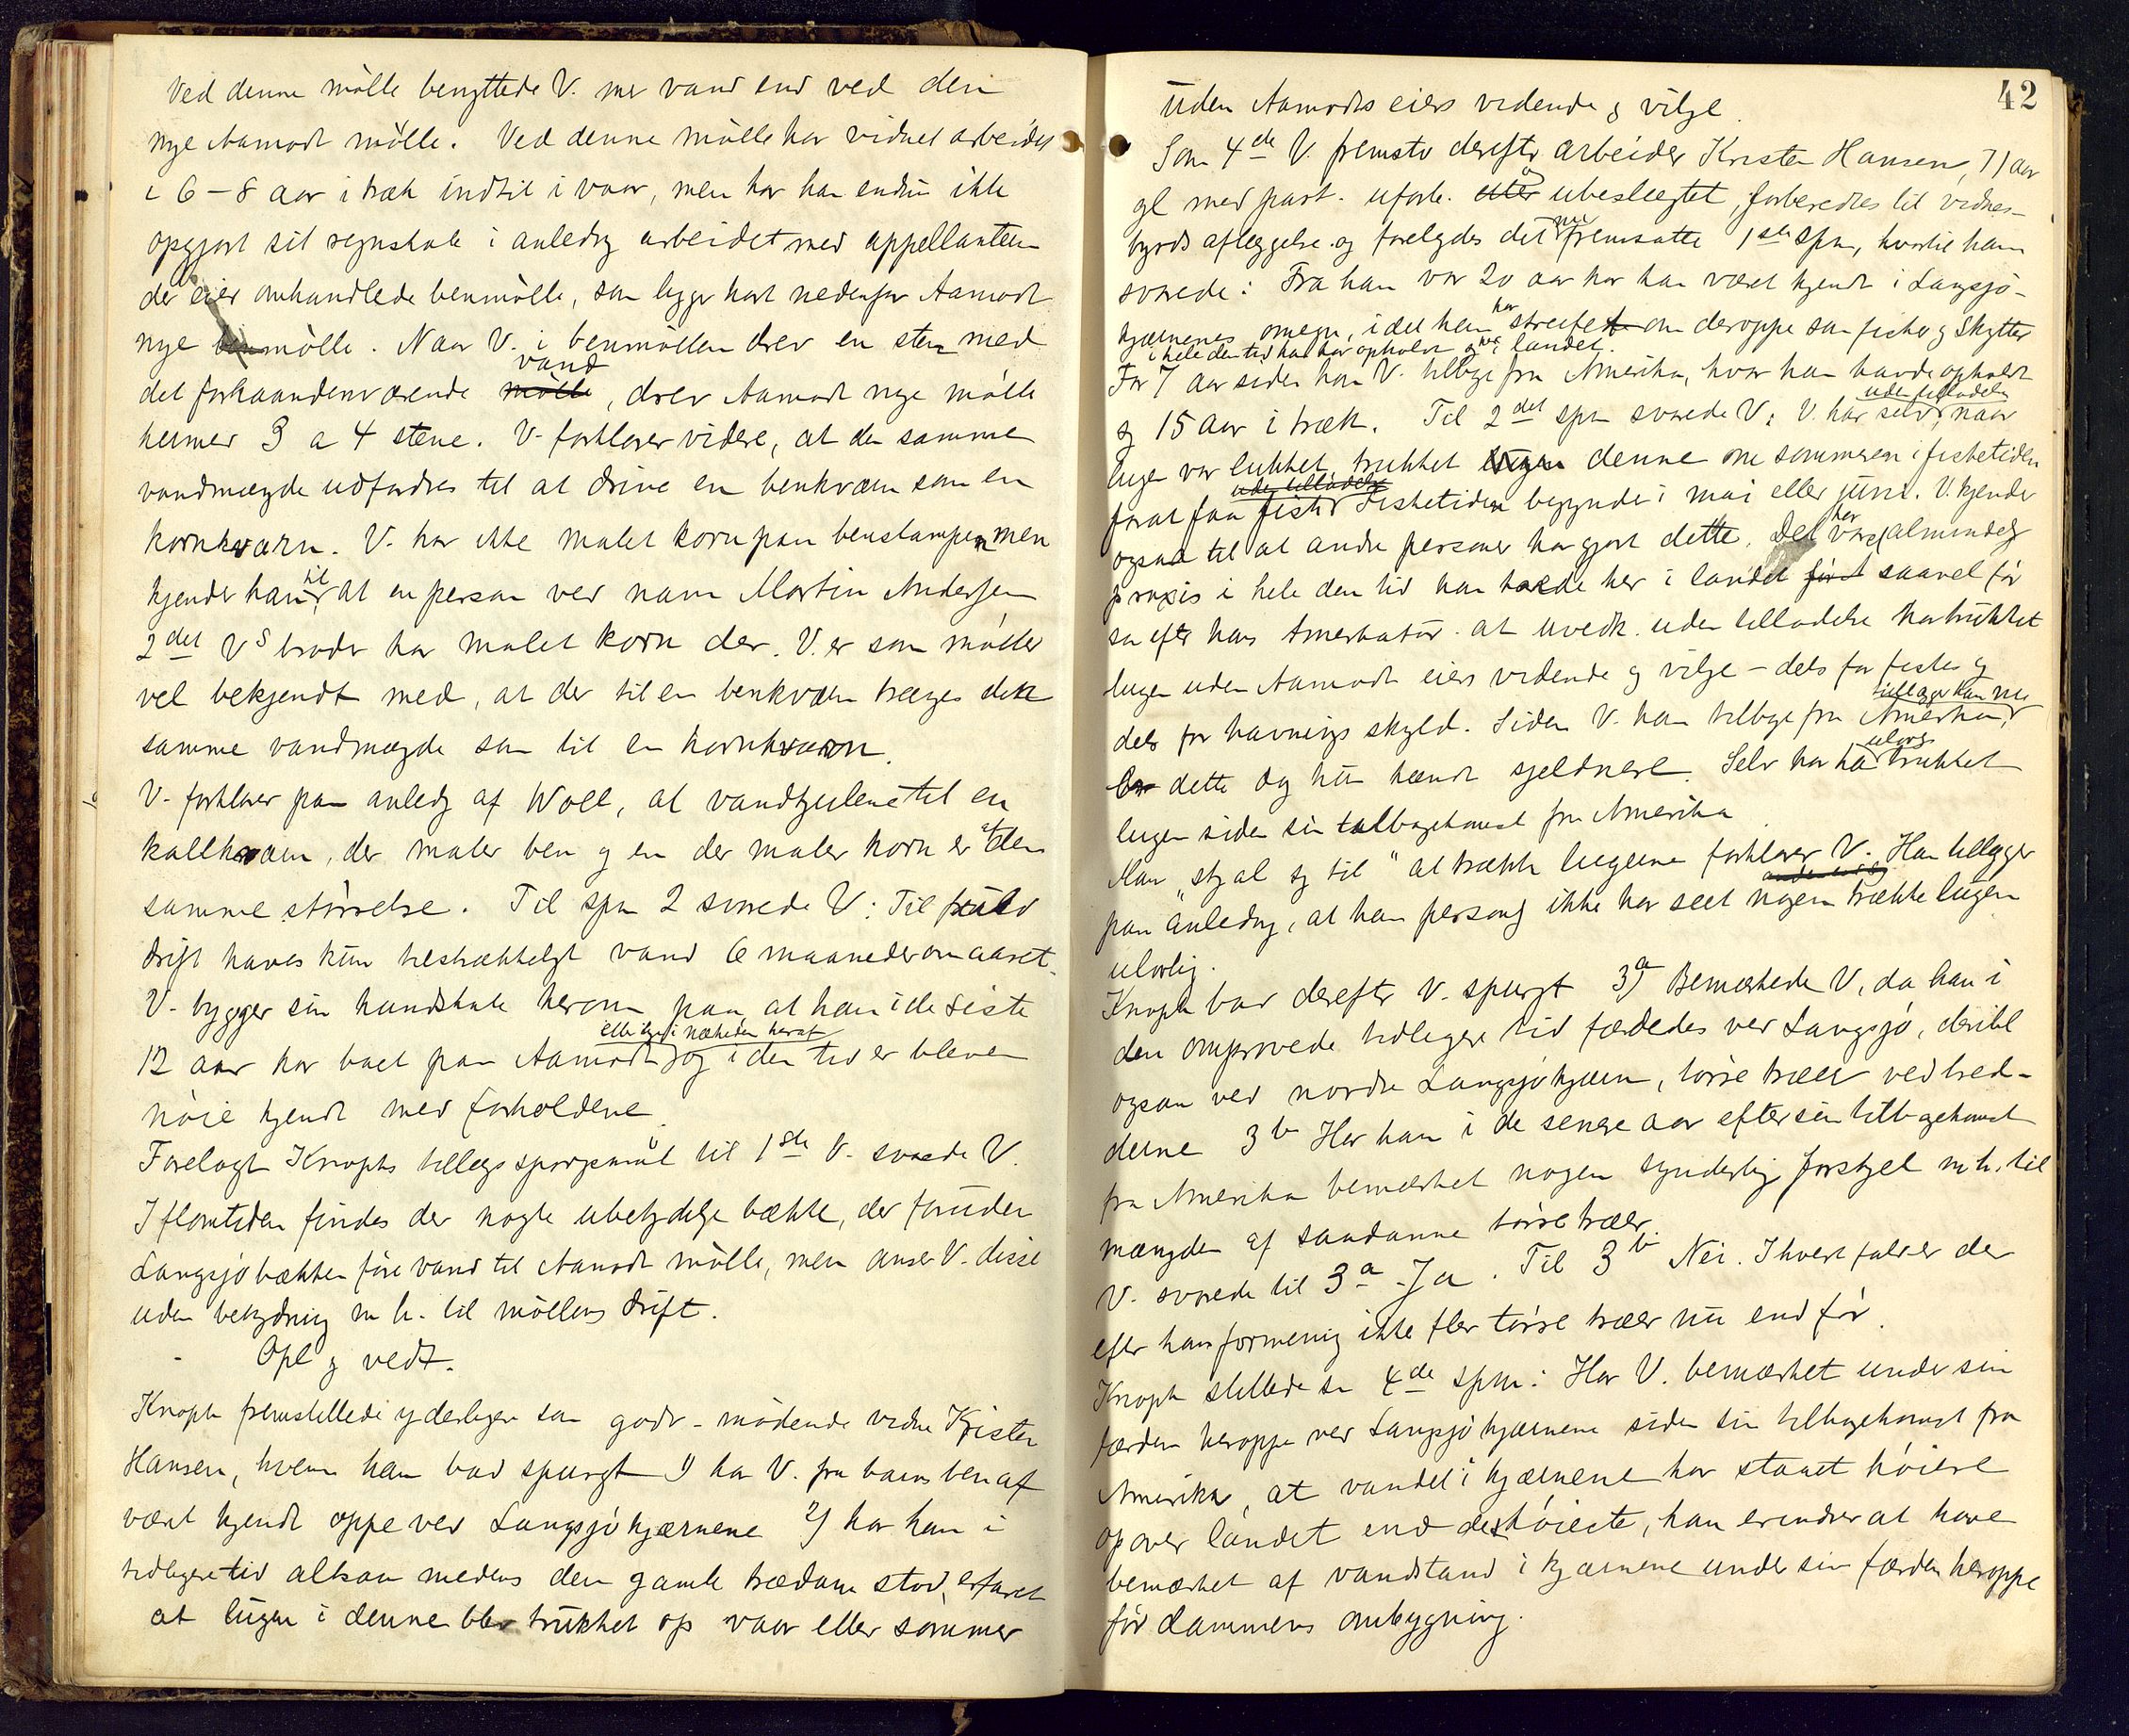 Ved denne mølle benyttede V. mer vand end ved den
nye Aamodt mølle. Ved denne mølle har vidnet arbeidet
i 6-8 aar i træk indtil i vaar, men har han endnu ikke
opgjort sit regnskab i anledng arbeidet med appellanten
der eier omhandlede benmølle, som ligger kort nedenfor Aamodt
nye mølle. Naar V. i benmøllen drev en sten med
det forhaandenværende vand, drev Aamodt nye mølle
hermed 3 a 4 stene. V. forklarer videre, at den samme
vandmængde udfordres til at drive en benkværn som en
kornkværn. V. har ikke malet korn paa benstampen men
kjender han til, at en person ved navn Martin Andersen
2det Vs broder har malet korn der. V. er som møller
vel bekjendt med, at der til en benkværn trænges den
samme vandmængde som til en kornkværn.
V. forklarer paa anledg af Woll, at vandhjulene til en
kallkværn, der maler ben og en der maler korn er af den
samme størrelse. Til spm 2 svarede V: Til fuld
drift haves kun tilstrækkeligt vand 6 maaneder om aaret.
V. bygger sin kundskab herom paa at han i de siste
eller lige i nærheden heraf
12 aar har boet paa Aamodt og i den tid er bleven
nøie kjendt med forholdene.
Forelagt Knophs tillægsspørgsmål til 1ste V. svarede V.
I flomtiden findes der nogle ubetydelige bække, der foruden
Langsjøbækken føre vand til Aamodt mølle, men anser V. disse
uden betydning m h. til møllens drift.
Opl og vedt.
Knoph fremstillede yderligere som godv-mødende vidne Krister
Hansen, hvem han bad spurgt 1) har V. fra barns ben af
været kjendt oppe ved Langsjøkjærnene 2) har han i
tidligere tid altsaa medens den gamle trædam stod, erfaret
at lugen i denne blev trukket op vaar eller sommer
42
uden Aamodts eiers vidende og vilje.
Som 4de V. fremstod derefter arbeider Krister Hansen, 71 aar
gl med part. uforb. og ubeslægtet, forberedtes til vidnes-
byrds aflæggelse og forelagdes det nu fremsatte 1ste spm, hvortil han
svarede: Fra han var 20 aar har han været kjendt i Langsjø-
kjærnenes omegn, idet han har streifet om deroppe som fisker og skytter
i hele den tid han har opholdt sig her i landet.
For 7 aar siden kom V. tilbage fra Amerika, hvor han havde opholdt
sig 15 aar i træk. Til 2det spm svarede V: V. har selv uden tilladelse, naar
lugen var lukket, trukket denne om sommeren i fisketiden
for at faa fisk. Fisketiden begynder i mai eller juni. V. kjender
ogsaa til at andre personer har gjort dette. Det har været almindelig
praxis i hele den tid han har her i landet saavel før
som efter hans Amerikatur at uvedk. uden tilladelse har trukket
lugen uden Aamodt eiers vidende og vilje - dels for fiske og
dels for havnings skyld. Siden V. kom tilbage fra Amerika, tillægger han nu
dette dog kun hændt sjeldnere. Selv har han ulovlig trukket
lugen siden sin tilbagekomst fra Amerika.
Man "stjal sig til" at trække lugerne forklarer V. Han tillægger
paa anledng, at han personlig ikke har seet nogen trække lugen
ulovlig.
Knoph bad derefter V. spurgt 3a) Bemærkede V, da han i
den omprovede tidligere tid færdedes ved Langsjø, dertil
ogsaa ved nordre Langsjøkjærn, tørre træer ved bred-
derne 3b Har han i de senere aar efter sin tilbagekomst
fra Amerika bemærket nogen synderlig forskjel m.h. til
mængden af saadanne tørre træer.
V. svarede til 3a Ja. Til 3b Nei. I hvert fald er der
efter hans formening ikke fler tørre træer nu end før.
Knoph stillede som 4de spm: Har V. bemærket under sin
færden heroppe ved Langsjøkjærnene siden sin tilbagekomst fra
Amerika, at vandet i kjærnene har staaet høiere
op over landet end det høieste, han erindrer at have
bemærket af vandstand i kjærnene under sin færden heroppe
før dammens ombygning.